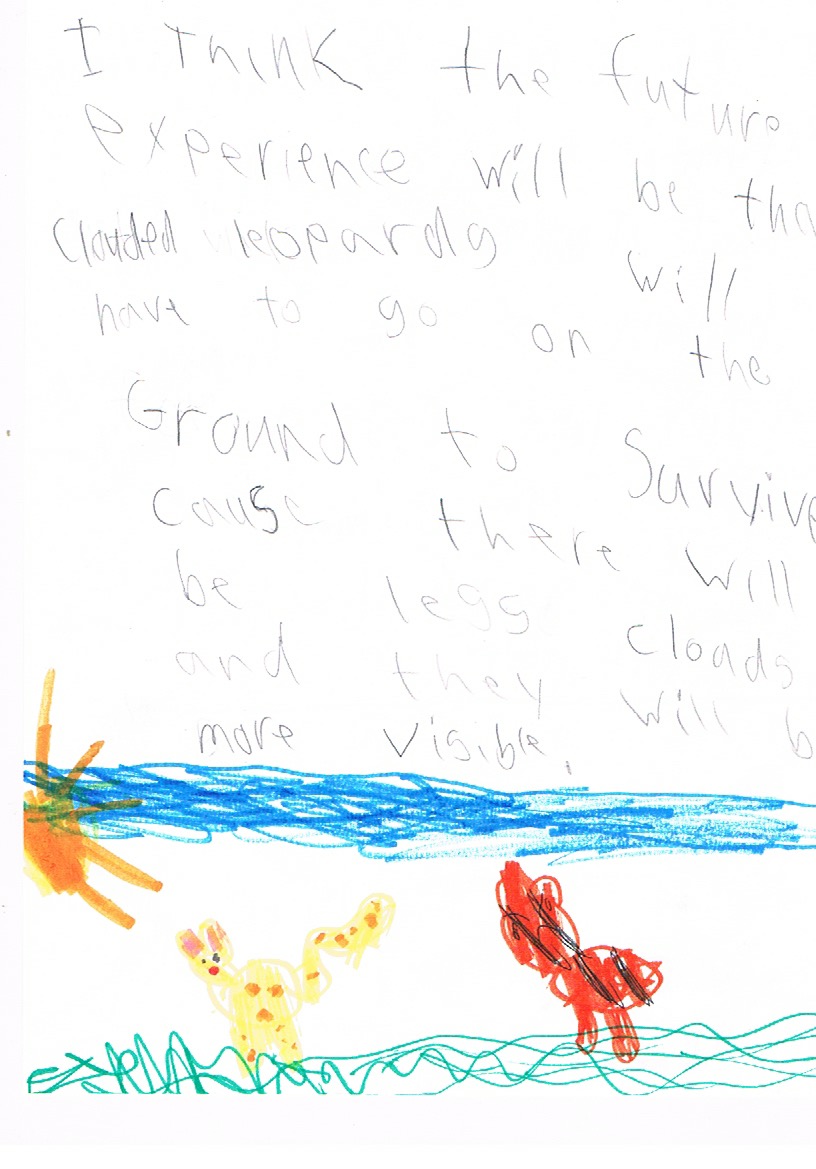 I Think the future
experience will be tha
Clouded leopards will
have to go on the
Ground to Survive
cause there will
be less cloads
and they will b
more visible.